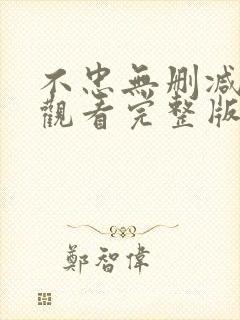 不忠無刪減
觀看完整版
鄭智偉